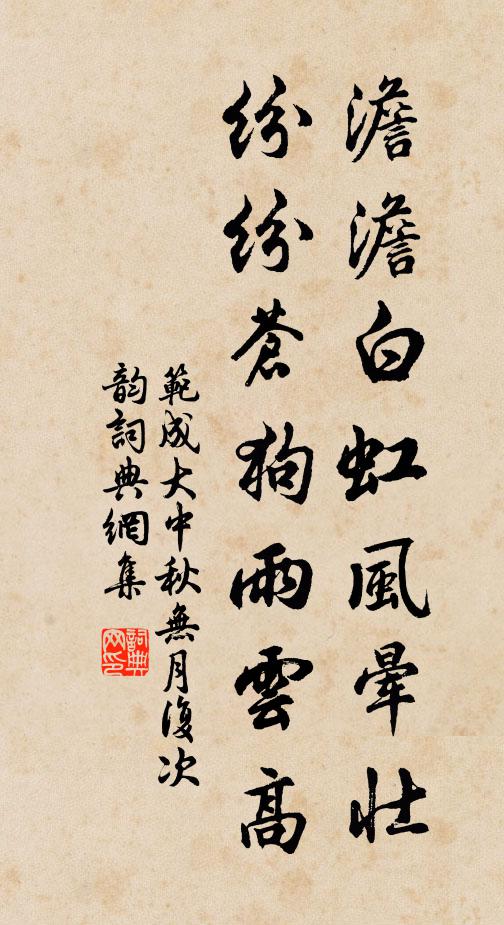 澹澹白虹風暈壯
紛紛蒼狗雨雲高
範成大中秋無月復次
韵詞典網集
詞典网印